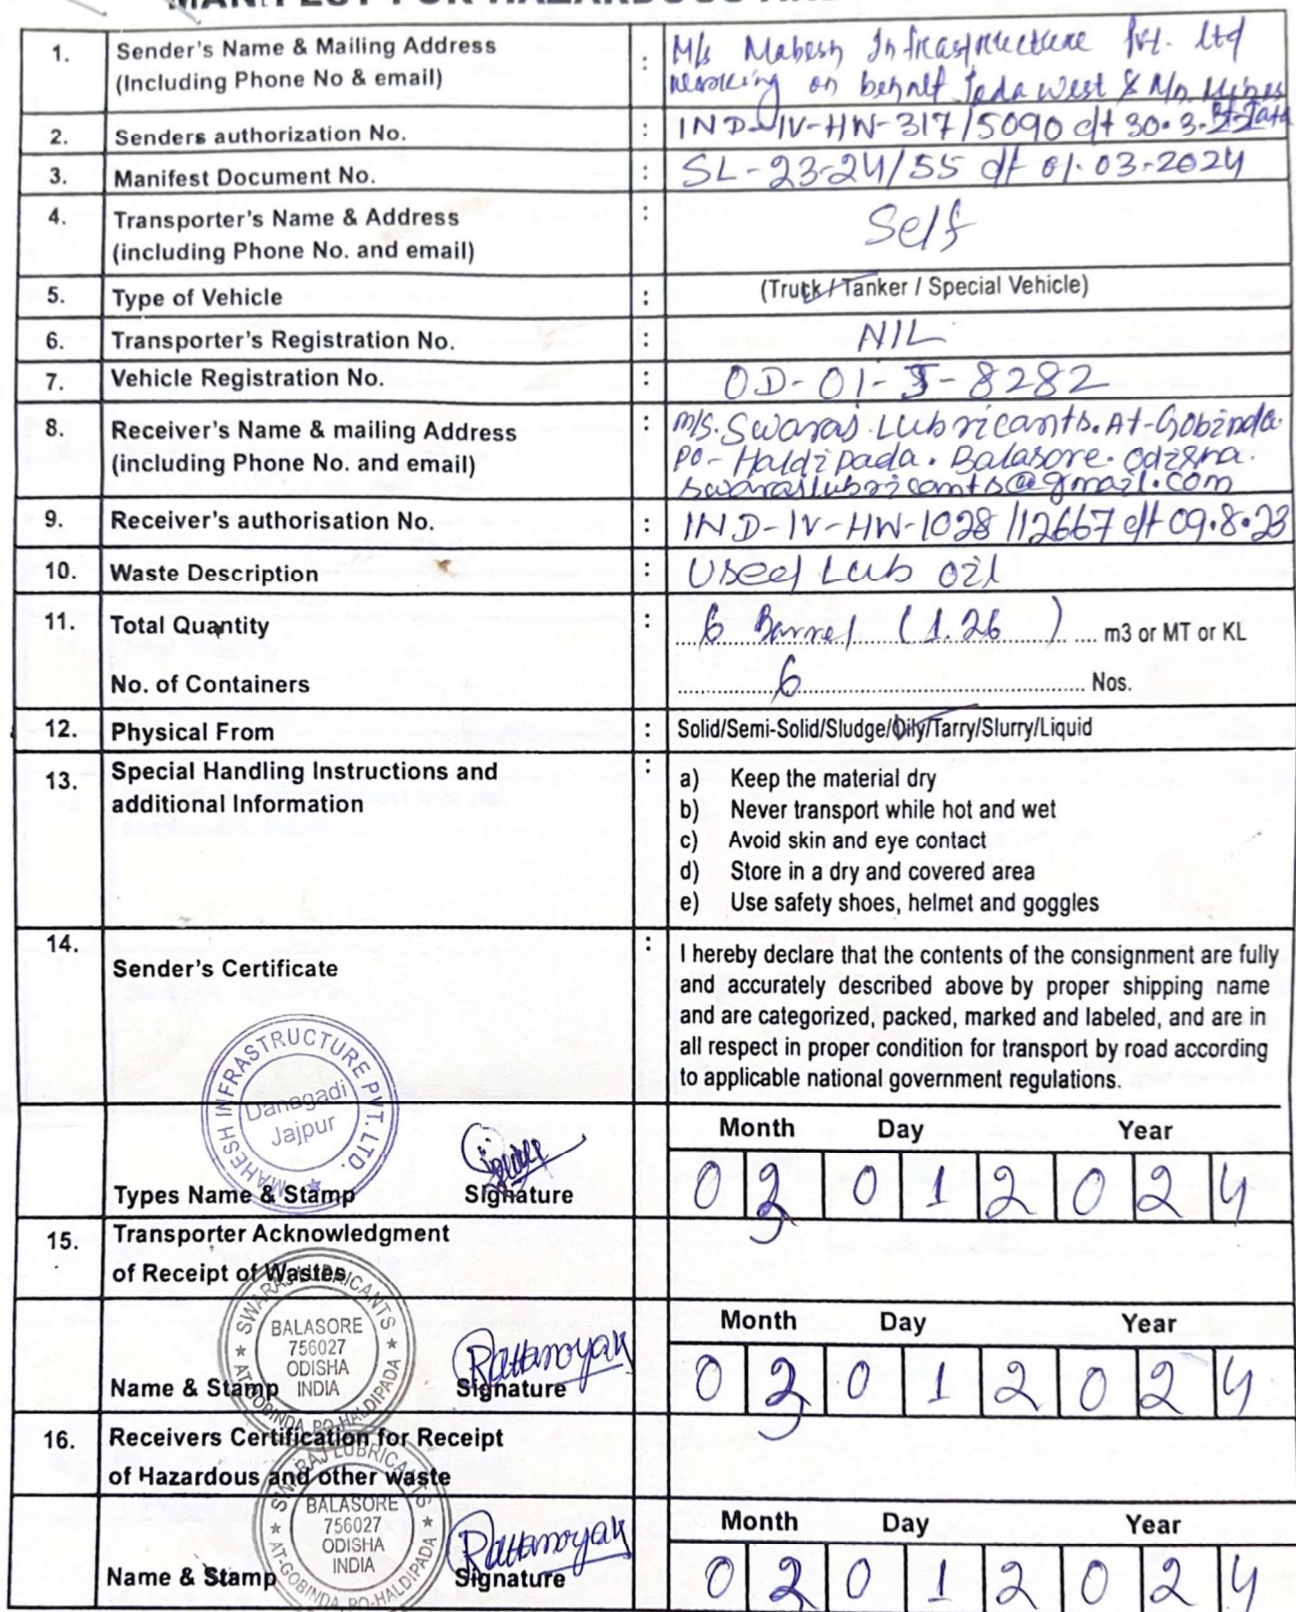 MANIFEST FOR HAZARDOUS AND
1. Sender's Name & Mailing Address : M/s Mahesh Infrastructure Pvt. Ltd
(Including Phone No & email) working on behalf Joda West & Mn. Mines
2. Senders authorization No. : IND-IV-HW-317/5090 dt 30.3.22
3. Manifest Document No. : SL-23-24/55 dt 01.03.2024
4. Transporter's Name & Address : Self
(including Phone No. and email)
5. Type of Vehicle : (Truck / Tanker / Special Vehicle)
6. Transporter's Registration No. : NIL
7. Vehicle Registration No. : OD-01-J-8282
8. Receiver's Name & mailing Address : M/S. Swaraj Lubricants. At-Gobinda.
(including Phone No. and email) PO-Haldipada. Balasore. Odisha.
swarajlubricants@gmail.com
9. Receiver's authorisation No. : IND-IV-HW-1028/12667 dt 09.8.23
10. Waste Description : Used Lub oil
11. Total Quantity : 6 Barrel (1.26 ) m3 or MT or KL
No. of Containers 6 Nos.
12. Physical From : Solid/Semi-Solid/Sludge/Oily/Tarry/Slurry/Liquid
13. Special Handling Instructions and : a) Keep the material dry
additional Information b) Never transport while hot and wet
c) Avoid skin and eye contact
d) Store in a dry and covered area
e) Use safety shoes, helmet and goggles
14. Sender's Certificate : I hereby declare that the contents of the consignment are fully
and accurately described above by proper shipping name
and are categorized, packed, marked and labeled, and are in
all respect in proper condition for transport by road according
to applicable national government regulations.
MAHESH INFRASTRUCTURE PVT. LTD.
Danagadi
Jajpur
Month Day Year
Types Name & Stamp Signature 0 3 0 1 2 0 2 4
15. Transporter Acknowledgment
of Receipt of Wastes
SWARAJ LUBRICANTS
BALASORE
756027
ODISHA
INDIA
AT-GOBINDA, PO-HALDIPADA
Month Day Year
Rattanayak
Name & Stamp Signature 0 3 0 1 2 0 2 4
16. Receivers Certification for Receipt
of Hazardous and other waste
SWARAJ LUBRICANTS
BALASORE
756027
ODISHA
INDIA
AT-GOBINDA, PO-HALDIPADA
Month Day Year
Rattanayak
Name & Stamp Signature 0 3 0 1 2 0 2 4